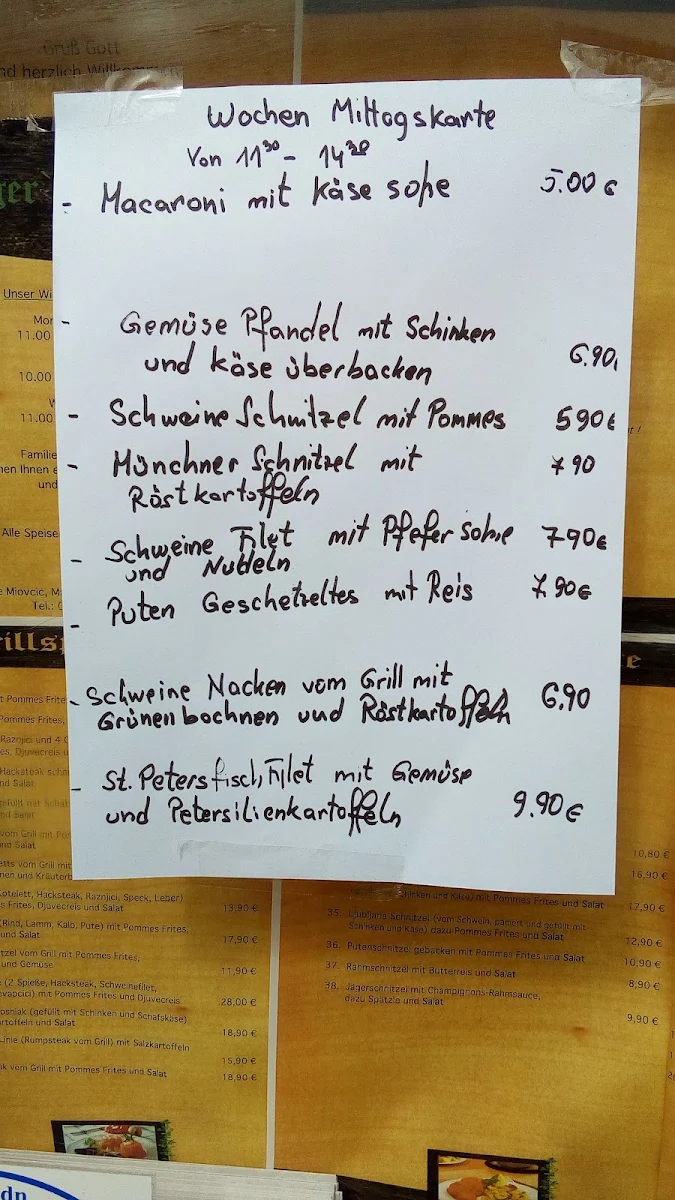 Grüß Gott
nd herzlich Willkommen
Wochen Mittagskarte
Von 11³⁰ - 14³⁰
- Macaroni mit Käse soße 5.00 €
- Gemüse Pfandel mit Schinken
und Käse überbacken 6.90
- Schweine Schnitzel mit Pommes 5 90€
- Münchner Schnitzel mit 7 90
Röstkartoffeln
- Schweine Filet mit Pfefer soße 7 90€
und Nudeln
- Puten Geschetzeltes mit Reis 7.90€
- Schweine Nacken vom Grill mit
Grünen bochnen und Röstkartoffeln 6.90
- St. Petersfisch, Filet mit Gemüse
und Petersilienkartoffeln 9.90€
ger
Unser Wi
Mor
11.00
10.00
11.00
Familie
nen Ihnen e
und
Alle Speise
e Miovcic, M
Tel.:
rillsp
t Pommes Frite
Pommes Frites,
Raznjici und 4 C
es, Djuvecreis u
Hacksteak schn
nd Salat
vom Grill mit Po
und Salat
etts vom Grill mit
nen und Kräuterb
Kotelett, Hacksteak, Raznjici, Speck, Leber)
s Frites, Djuvecreis und Salat 13,90 €
(Rind, Lamm, Kalb, Pute) mit Pommes Frites,
und Salat 17,90 €
tzel vom Grill mit Pommes Frites,
und Gemüse 11,90 €
(2 Spieße, Hacksteak, Schweinefilet,
evapcici) mit Pommes Frites und Djuvecreis 28,00 €
osniak (gefüllt mit Schinken und Schafskäse)
artoffeln und Salat 18,90 €
Linie (Rumpsteak vom Grill) mit Salzkartoffeln
15,90 €
ak vom Grill mit Pommes Frites und Salat 18,90 €
e
10,80 €
16,90 €
Schinken und Käse) mit Pommes Frites und Salat 17,90 €
35. Ljubljana Schnitzel (vom Schwein, paniert und gefüllt mit
Schinken und Käse) dazu Pommes Frites und Salat 12,90 €
36. Putenschnitzel gebacken mit Pommes Frites und Salat 10,90 €
37. Rahmschnitzel mit Butterreis und Salat 8,90 €
38. Jägerschnitzel mit Champignons-Rahmsauce,
dazu Spätzle und Salat 9,90 €
dn